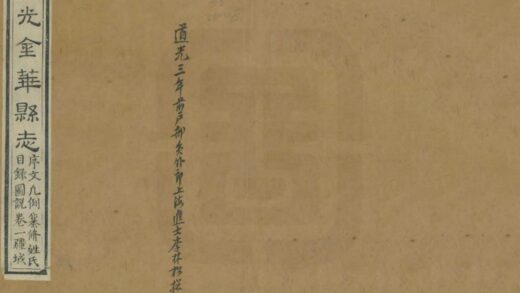 道光三年前戶部員外郎上海進士李林松撰
光金華縣志
序文凡例纂脩姓氏
目錄圖說卷一疆域